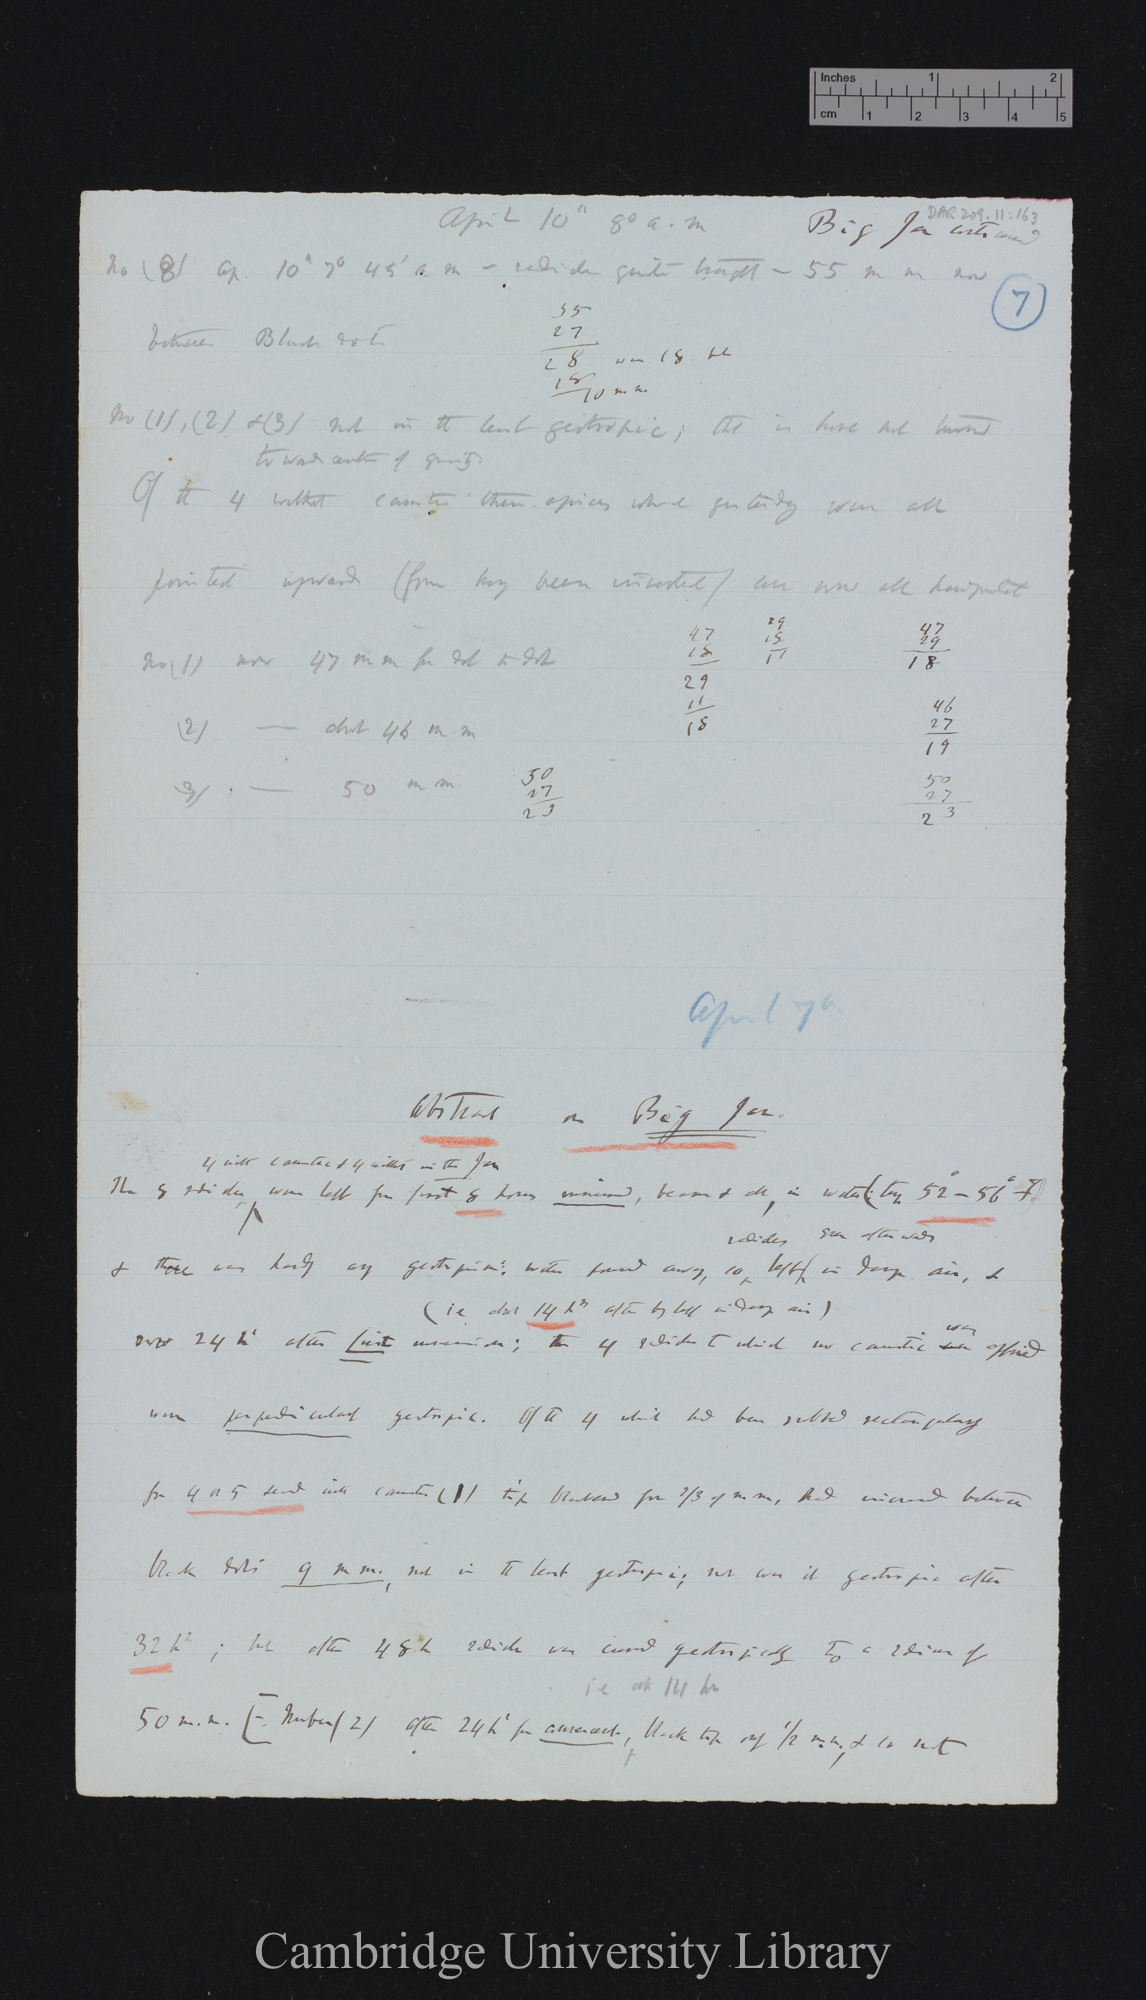 Inches 1 2
cm 1 2 3 4 5
DAR 209.11:163
April 10th 8° a.m
Big Jar continued
No (8) Ap. 10th 7° 45' a m — radicle quite straight — 55 m m now
7
between Black dots
55
27
28 was 18.
18
10 m m
No (1), (2) & (3) not in the least geotropic; that is have not turned
towards centre of gravity.
Of the 4 without caustic their apices which yesterday were all
pointed upwards (from having been inverted) are now all horizontal
No (1) now 47 m m from dot to dot
47
18
29
11
18
29
18
11
47
29
18
(2) — about 46 m.m
46
27
19
(3) — 50 m m.
50
27
23
50
27
23
April 7th
Abstract on Big Jar.
4 with caustic & 4 without in the Jar
The 8 radicles, were left for first 8 hours immersed, beans & all, in water (temp 52° – 56° F.)
radicles even afterwards
& there was hardly any geotropism: water poured away, so left in damp air, &
(ie about 14 hrs after being left in damp air)
now 24 h after first immersion; the 4 radicles to which no caustic was applied
were perpendicularly geotropic. Of the 4 which had been rubbed rectangularly
for 4 or 5 seconds with caustic (1) tip blackened for 2/3 of m m, had increased between
black dots 9 m m., not in the least geotropic; nor was it geotropic after
32 h; but after 48 h radicle was curved geotropically to a radius of
i e after 14 hrs
50 m.m. [— Number (2) after 24 h from , black tip only 1/2 m.m, & so not
Cambridge University Library